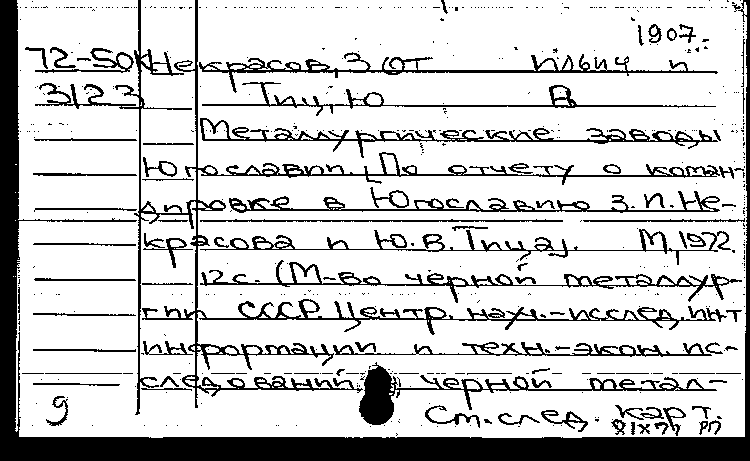 1907.
72-50K Некрасов, З от Ильич и
3123 Тиц, Ю В
Металлургические заводы
Югославии. [По отчету о коман-
дировке в Югославию З.И. Не-
красова и Ю.В. Тица]. М., 1972.
12 с. (М-во черной металлур-
гии СССР. Центр. науч.-исслед. ин-т
информации и техн.-экон. ис-
следований черной метал-
9 См. след. карт.